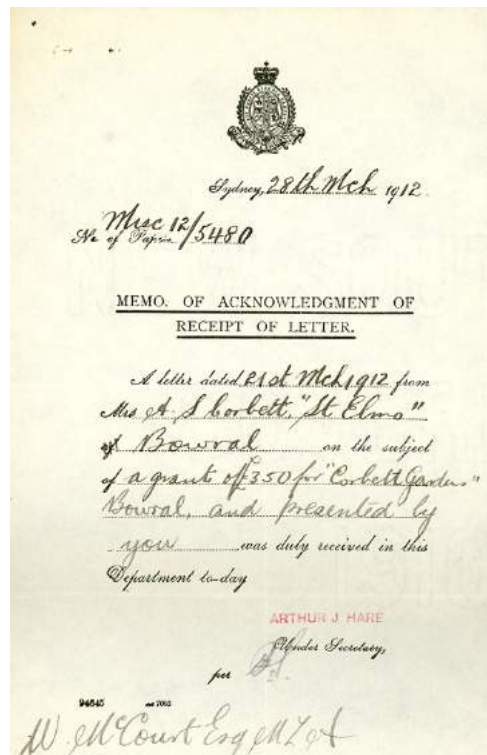 Sydney, 28th Mch 1912.
Misc 12/5480
No of Papers
MEMO. OF ACKNOWLEDGMENT OF
RECEIPT OF LETTER.
A letter dated 21st Mch 1912 from
Mrs A. S Corbett, "St Elmo"
of Bowral on the subject
of a grant of £350 for "Corbett Gardens"
Bowral, and presented by
you was duly received in this
Department to-day
ARTHUR J HARE
Under Secretary,
per
94645
W. McCourt Esq MLA